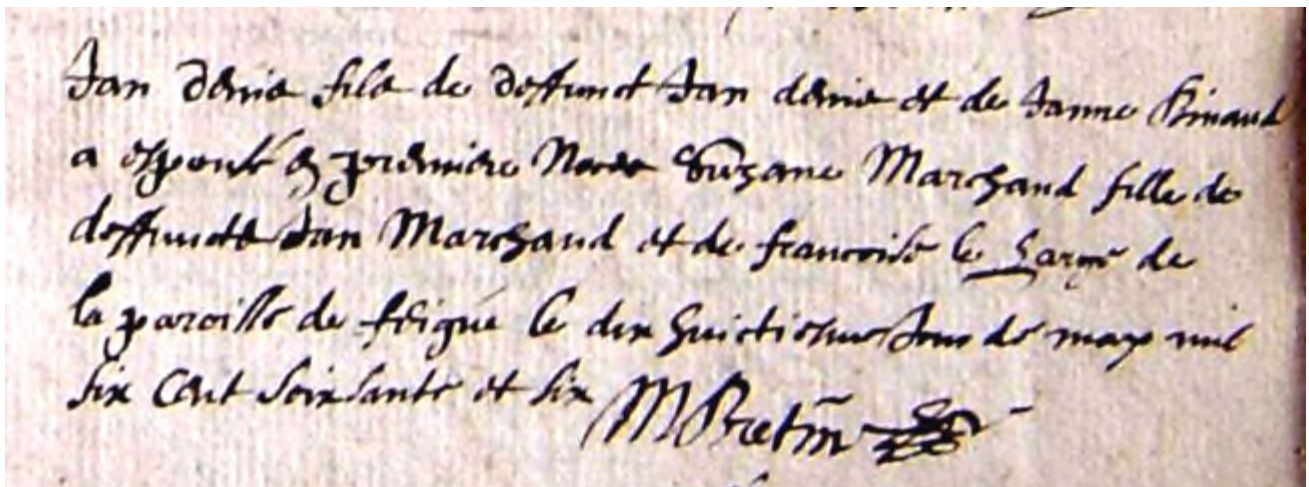 Jan denis fils de deffunct Jan denis et de Janne Rinaud
a espousé en premiere Noces Suzane Marchand fille de
deffuncts Jan Marchand et de francoise le de
la paroisse de le dix huictiesme Jour de may mil
six Cent soixante et six M